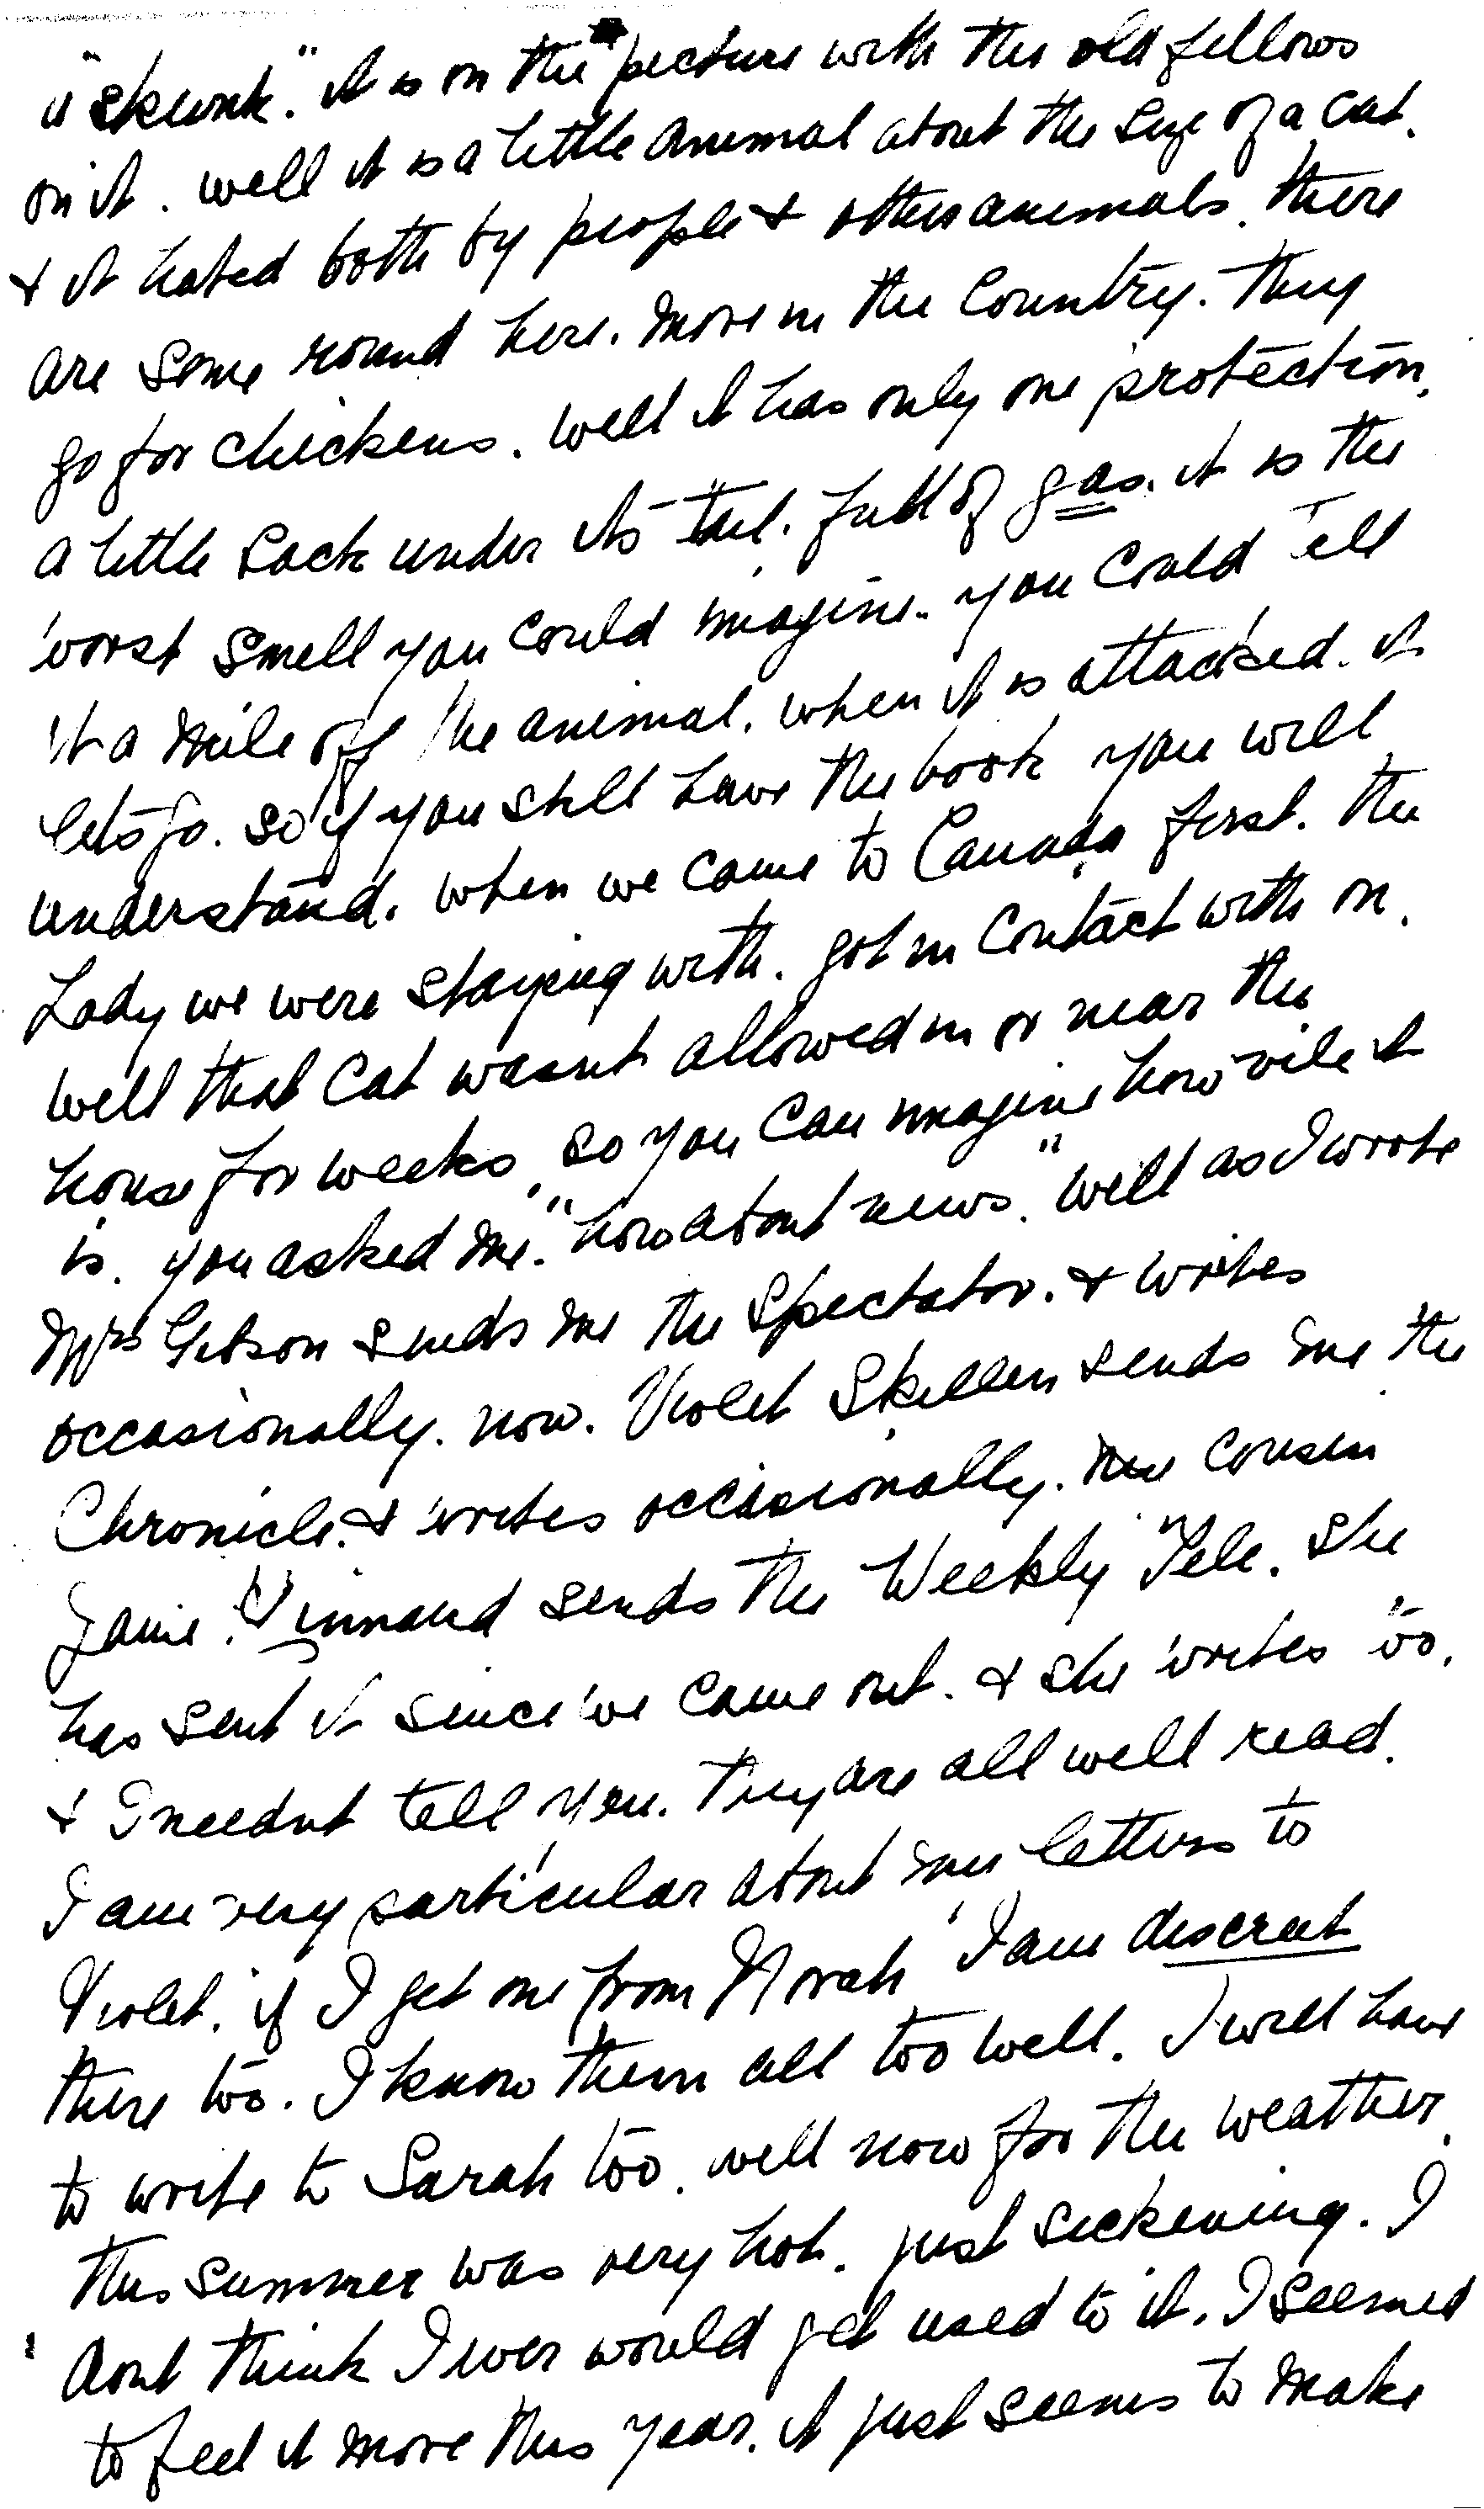 "skunk." it is on the picture with the old fellows
on it. well it is a little animal about the size of a cat.
& it hated both by people & other animals. there
are some round here. more in the country. they
go for chickens. well it has only one protection,
a little sack under its tail. full of gas. it is the
worst smell you could imagine. you could tell
it a mile off the animal. when it is attacked. it
lets go. so if you still have the book you will
understand. when we came to Canada first. the
Lady we were staying with. got in contact with on.
well that cat wasnt allowed in or near the
house for weeks, so you can imagine how vile it
is. you asked me. "how about news." well as I wrote
Mrs Gibson sends me the Spectator. & writes
occasionally. now. Violet Skillen sends me the
Chronicle. & writes occasionally. the cousin
Jamie sends the Weekly Tele. she
has sent it since we came out. & she writes too.
& I neednt tell you. they are all well read.
I am very particular about my letters to
Violet. if I get one from Norah I am discreet
there too. I know them all too well. I will have
to write to Sarah too. well now for the weather.
this summer was very hot. just sickening. I
dont think I ever would get used to it. I seemed
to feel it more this year. it just seems to make